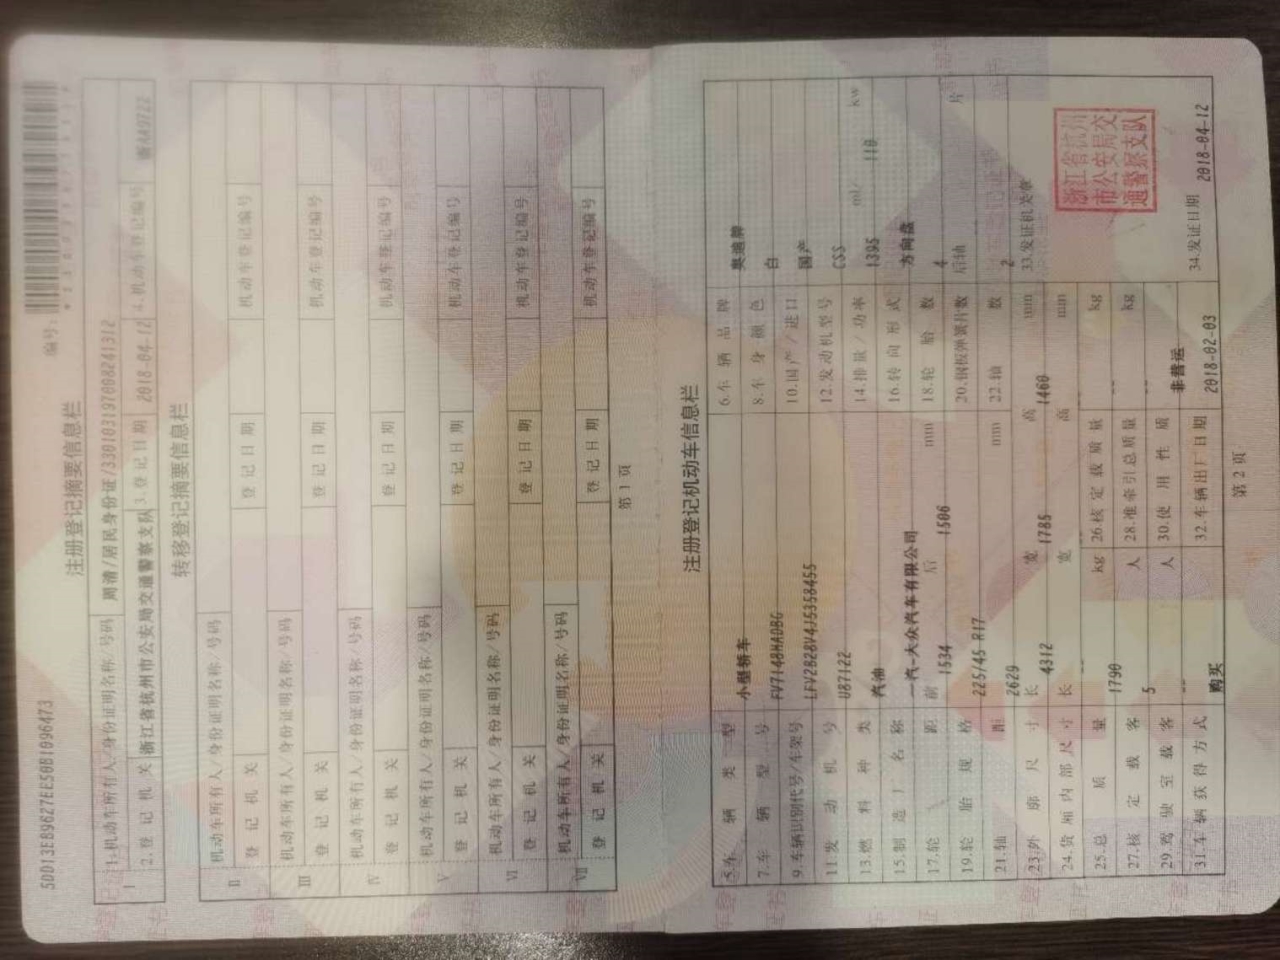 5DD13EB9627EE50B1096473
编号:
注册登记摘要信息栏
I 1.机动车所有人/身份证明名称/号码 周清/居民身份证/330103197008241312
2.登记机关 浙江省杭州市公安局交通警察支队 3.登记日期 2018-04-12 4.机动车登记编号
转移登记摘要信息栏
II 机动车所有人/身份证明名称/号码
登记机关 登记日期 机动车登记编号
III 机动车所有人/身份证明名称/号码
登记机关 登记日期 机动车登记编号
IV 机动车所有人/身份证明名称/号码
登记机关 登记日期 机动车登记编号
V 机动车所有人/身份证明名称/号码
登记机关 登记日期 机动车登记编号
VI 机动车所有人/身份证明名称/号码
登记机关 登记日期 机动车登记编号
VII 机动车所有人/身份证明名称/号码
登记机关 登记日期 机动车登记编号
第1页
注册登记机动车信息栏
5.车辆类型 小型轿车 6.车辆品牌 奥迪牌
7.车辆型号 FV7148HADBG 8.车身颜色 白
9.车辆识别代号/车架号 LFV2B28V4J5358455 10.国产/进口 国产
11.发动机号 U87122 12.发动机型号 CSS
13.燃料种类 汽油 14.排量/功率 1395 ml/ 110 kw
15.制造厂名称 一汽-大众汽车有限公司 16.转向形式 方向盘
17.轮距 前 1534 后 1506 mm 18.轮胎数 4
19.轮胎规格 225/45 R17 20.钢板弹簧片数 后轴 片
21.轴距 2629 mm 22.轴数 2
23.外廓尺寸 长 4312 宽 1785 高 1460 mm 33.发证机关章
24.货厢内部尺寸 长 宽 高 mm
浙江省杭州
市公安局交
通警察支队
25.总质量 1790 kg 26.核定载质量 -- kg
27.核定载客 5 人 28.准牵引总质量 -- kg
29.驾驶室载客 -- 人 30.使用性质 非营运
31.车辆获得方式 购买 32.车辆出厂日期 2018-02-03 34.发证日期 2018-04-12
第2页